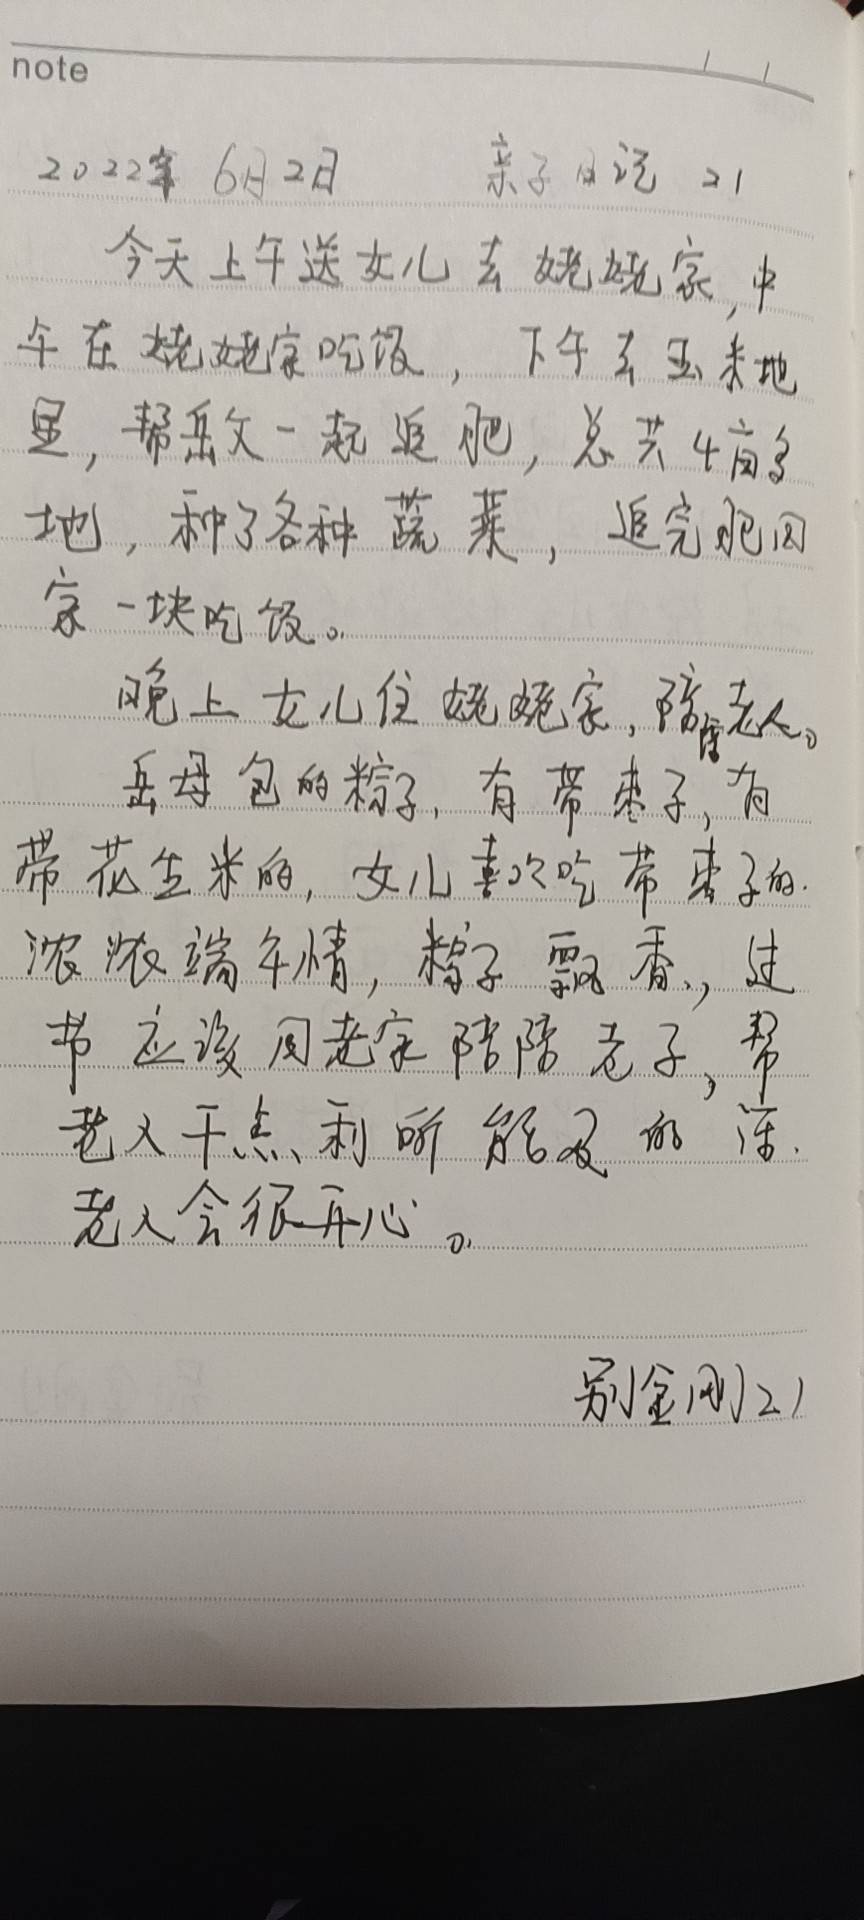 note
2022年 6月2日 亲子日记 21
今天上午送女儿去姥姥家,中
午在姥姥家吃饭,下午去玉米地
里,帮岳父一起追肥,总共4亩多
地,种了各种蔬菜,追完肥回
家一块吃饭。
晚上女儿住姥姥家,陪陪老人。
岳母包的粽子,有带枣子,有
带花生米的,女儿喜欢吃带枣子的.
浓浓端午情,粽子飘香,过
节应该回老家陪陪老子,帮
老人干点利所能及的活.
老人会很开心。
别金刚21